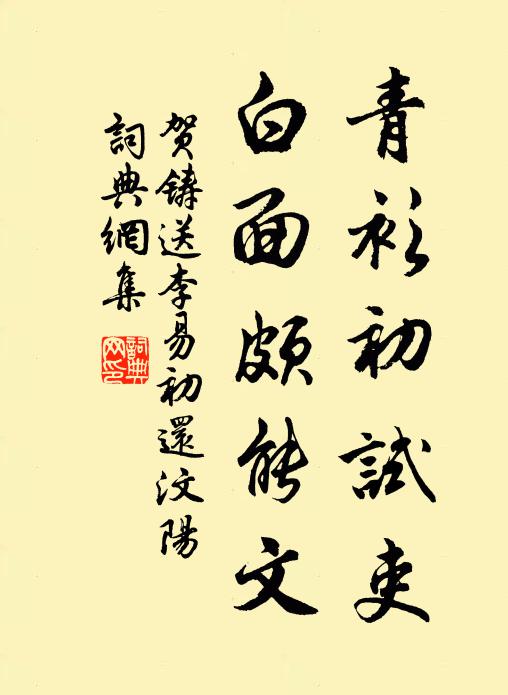 青衫初試吏
白面頗能文
贺鑄送李易初還汶陽
詞典網集
詞典網印